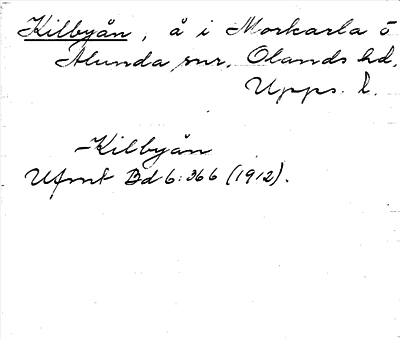 Kilbyån, å i Morkarla o
Alunda snr, Olands hd,
Upps. l.
-Kilbyån
Ufmt Bd 6:366 (1912).